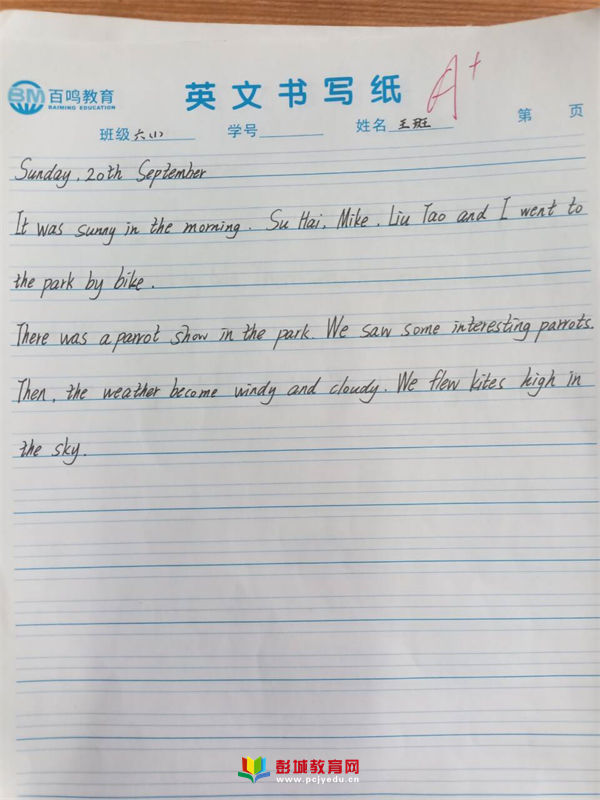 BM 百鸣教育
BAIMING EDUCATION
英文书写纸
A+
第 页
班级 六 学号 姓名 王
Sunday, 20th September
It was sunny in the morning. Su Hai, Mike, Liu Tao and I went to
the park by bike.
There was a parrot show in the park. We saw some interesting parrots.
Then, the weather become windy and cloudy. We flew kites high in
the sky.
彭城教育网
www.pcjyedu.cn